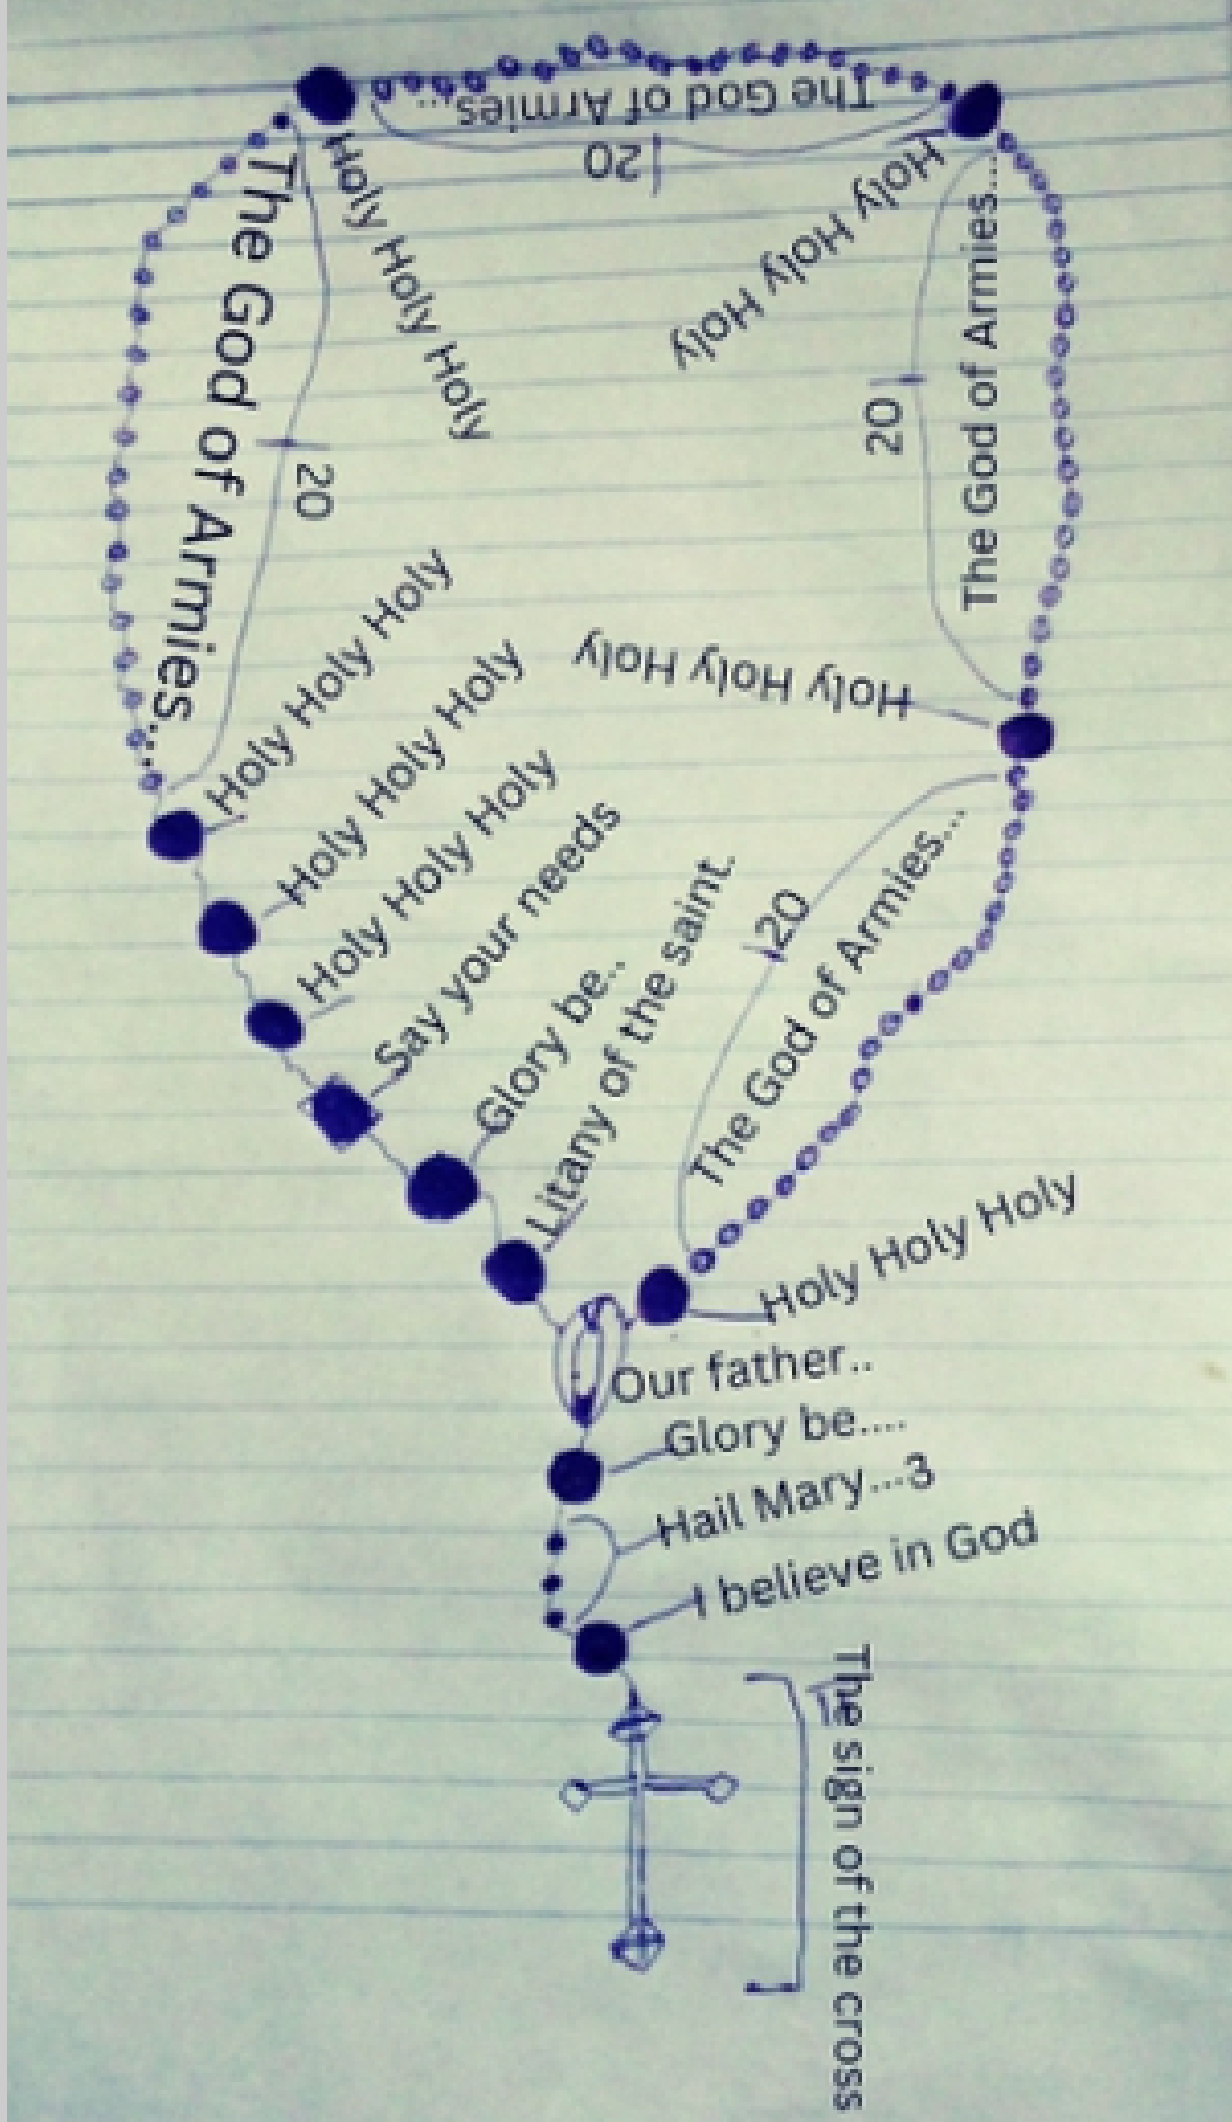 The God of Armies...
20
Holy Holy Holy
Holy Holy Holy
The God of Armies...
20
The God of Armies...
20
Holy Holy Holy
Holy Holy Holy
Holy Holy Holy
Holy Holy Holy
Say your needs
Glory be..
Litany of the saint.
20
The God of Armies...
Holy Holy Holy
Our father..
Glory be....
Hail Mary...3
I believe in God
The sign of the cross